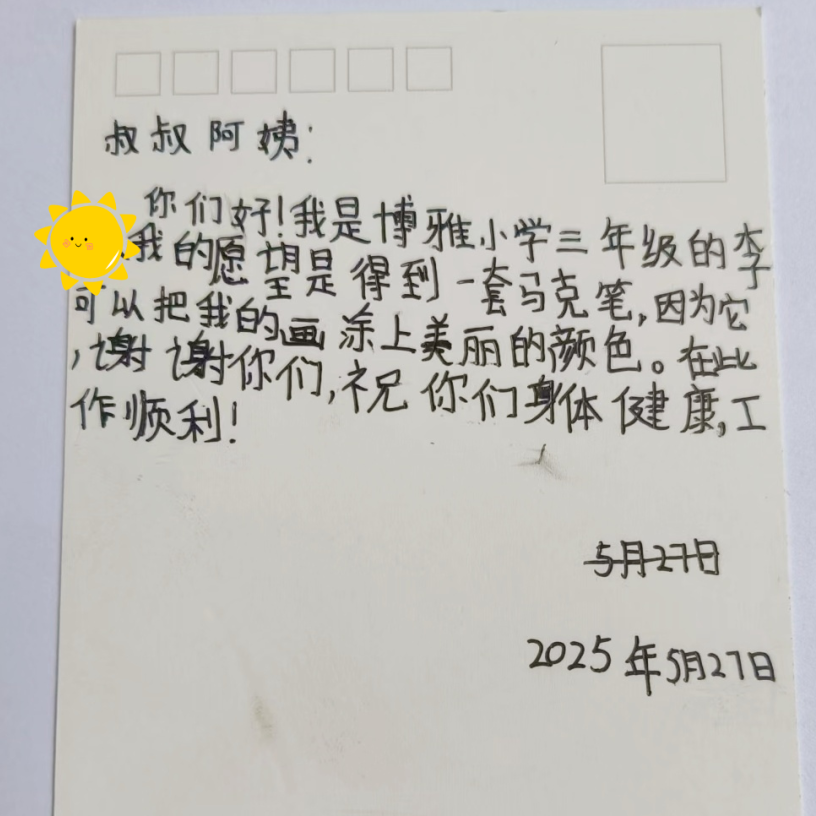 叔叔阿姨:
你们好!我是博雅小学三年级的李
我的愿望是得到一套马克笔,因为它
可以把我的画涂上美丽的颜色。在此
,谢谢你们,祝你们身体健康,工
作顺利!
5月27日
2025年5月27日